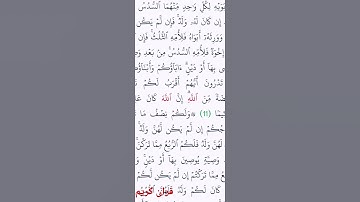 بَوَيْهِ لِكُلِّ وَٰحِدٍ مِّنْهُمَا ٱلسُّدُسُ
إِن كَانَ لَهُۥ وَلَدٌ ۚ فَإِن لَّمْ يَكُن
وَوَرِثَهُۥٓ أَبَوَاهُ فَلِأُمِّهِ ٱلثُّلُثُ ۚ فَإِن
إِخْوَةٌ فَلِأُمِّهِ ٱلسُّدُسُ ۚ مِنۢ بَعْدِ وَ
ى بِهَآ أَوْ دَيْنٍ ۗ ءَابَآؤُكُمْ وَأَبْنَآؤُ
تَدْرُونَ أَيُّهُمْ أَقْرَبُ لَكُمْ
ضَةً مِّنَ ٱللَّهِ ۗ إِنَّ ٱللَّهَ كَانَ عَ
كِيمًا (11) ۞ وَلَكُمْ نِصْفُ مَا
جُكُمْ إِن لَّمْ يَكُن لَّهُنَّ وَلَدٌ ۚ
لَهُنَّ وَلَدٌ فَلَكُمُ ٱلرُّبُعُ مِمَّا تَرَكْنَ ۚ
وَصِيَّةٍ يُوصِينَ بِهَآ أَوْ دَيْنٍ ۚ وَ
عُ مِمَّا تَرَكْتُمْ إِن لَّمْ يَكُن لَّكُمْ
كَانَ لَكُمْ وَلَدٌ فَلَهُنَّ
قرآن الكريم